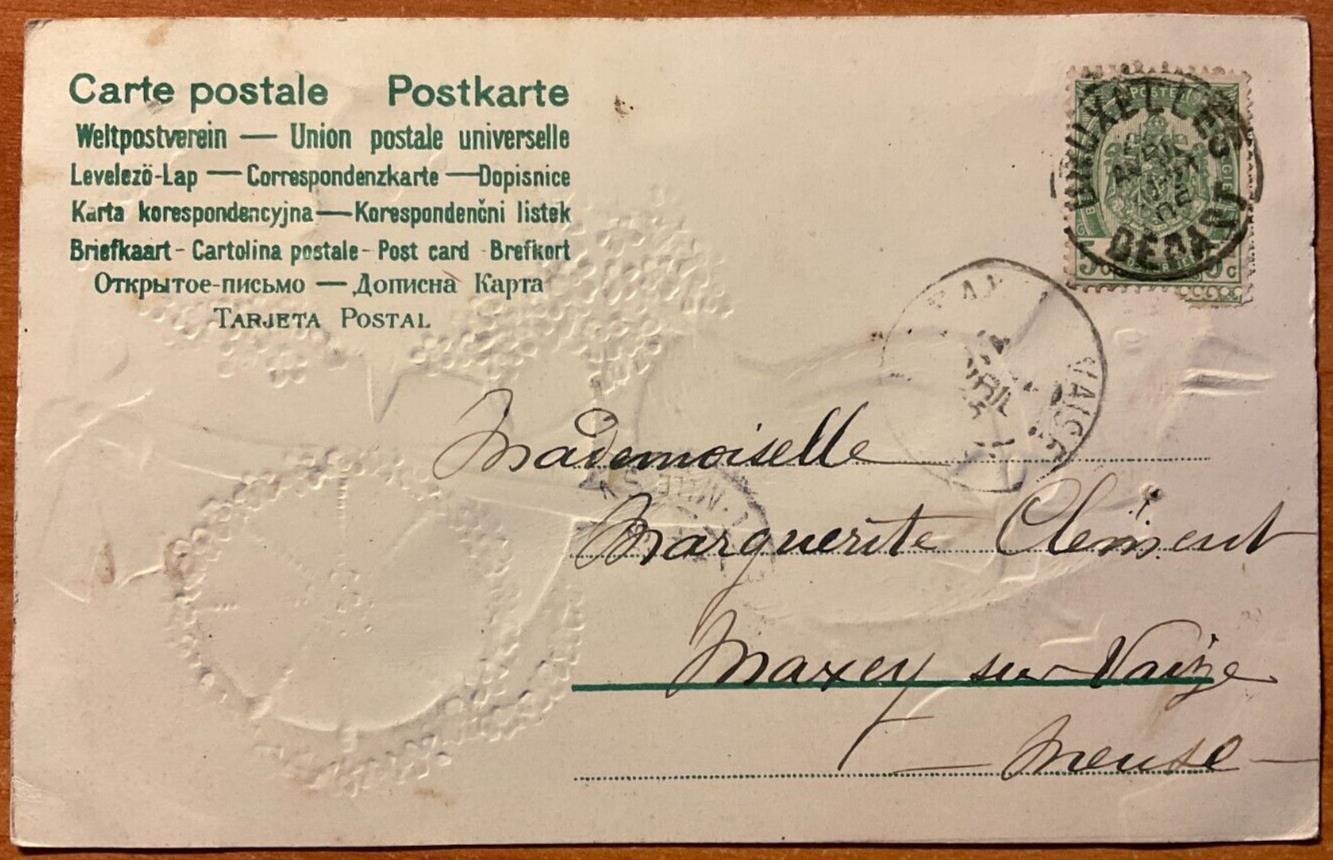 Carte postale Postkarte
Weltpostverein — Union postale universelle
Levelezö-Lap — Correspondenzkarte — Dopisnice
Karta korespondencyjna — Korespondenčni listek
Briefkaart - Cartolina postale - Post card - Brefkort
Открытое-письмо — Дописна Карта
TARJETA POSTAL
BRUXELLES
DEPART
5c
Mademoiselle
Marguerite Clément
Maxey sur Vaize
Meuse